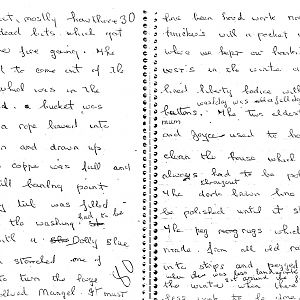 but, mostly hawthorn 30
dead bits, which got
e fire going. The
t to come out of the
which was in the
d. a bucket was
a rope lowered into
n and drawn up.
coppe was full and
till boiling point
tub was filled
the washing had to be
with a Dolly Blue
n starched one of
to turn the legs
Mangel. It must
have been hard work now
timekeis will a pocket u
where we kept our hankie
vests in the winter a
lined liberty bodice with
washday was a full day
buttons. The two eldest
mum
and Joyce used to ha
clean the house which
always had to be pol
throughout
The dark brown line
be polished until it s
The peg rugs which
made, from all old ra
into strips and pegged
when there was less
the winter when there
less work to be done